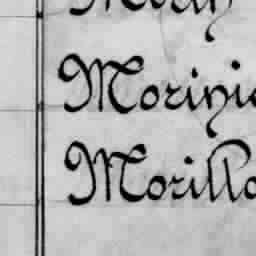 Morinic
Morillo